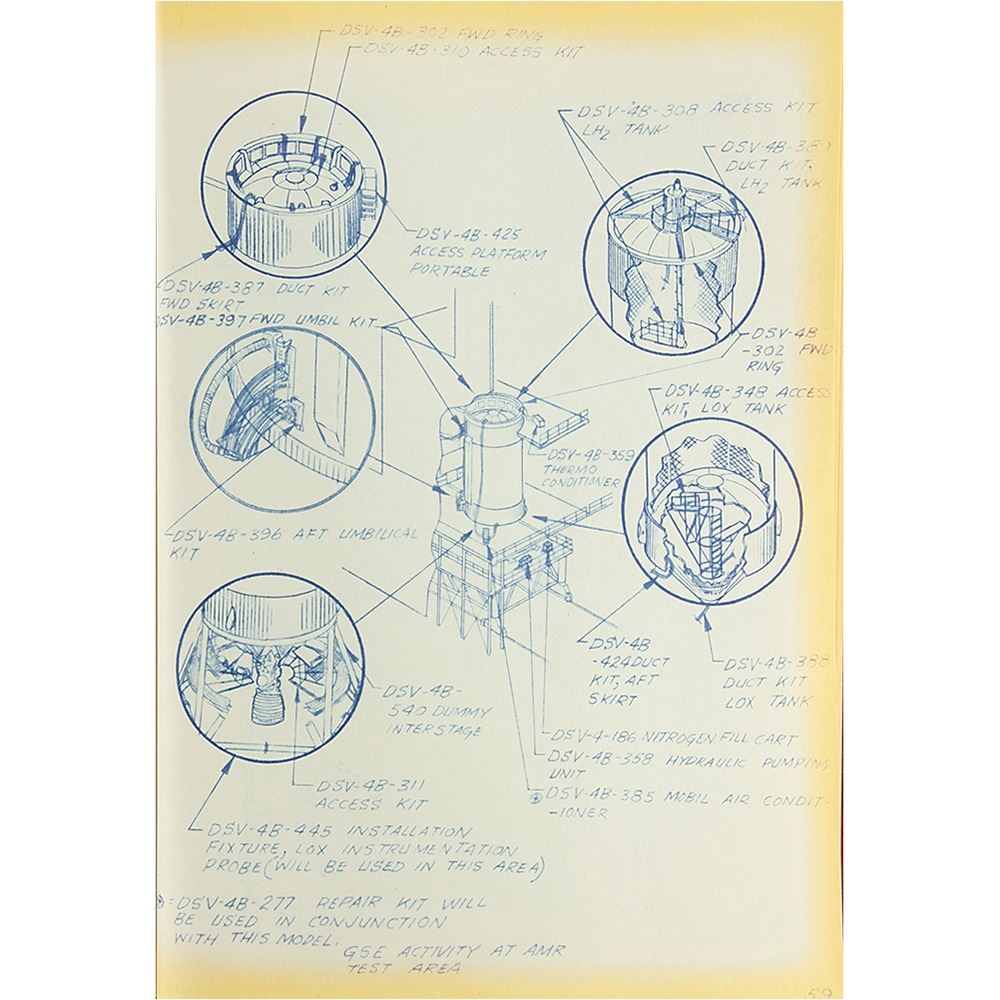 DSV-4B-302 FWD RING
DSV-4B-310 ACCESS KIT
DSV-4B-308 ACCESS KIT
LH2 TANK
DUCT KIT,
LH2 TANK
DSV-4B-425
ACCESS PLATFORM
PORTABLE
DSV-4B-387 DUCT KIT
FWD SKIRT
DSV-4B-397 FWD UMBIL KIT
DSV-4B
-302 FWD.
RING
DSV-4B-348 ACCESS
KIT, LOX TANK
DSV-4B-359
THERMO
CONDITIONER
DSV-4B-396 AFT UMBILICAL
KIT
DSV-4B
-424 DUCT
KIT, AFT
SKIRT
DSV-4B-388
DUCT KIT
LOX TANK
DSV-4B-
540 DUMMY
INTERSTAGE
DSV-4-186 NITROGEN FILL CART
DSV-4B-358 HYDRAULIC PUMPING
UNIT
DSV-4B-385 MOBIL AIR CONDIT-
-IONER
DSV-4B-311
ACCESS KIT
DSV-4B-445 INSTALLATION
FIXTURE, LOX INSTRUMENTATION
PROBE (WILL BE USED IN THIS AREA)
= DSV-4B-277 REPAIR KIT WILL
BE USED IN CONJUNCTION
WITH THIS MODEL.
GSE ACTIVITY AT AMR
TEST AREA
59